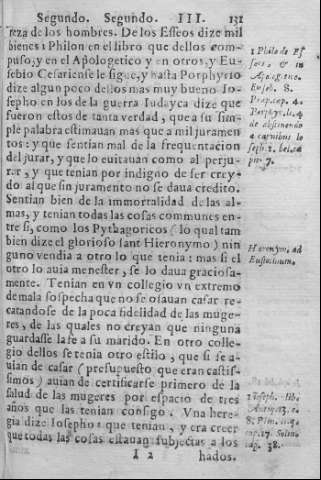 Segundo. Segundo. III. 131
reza de los hombres. De los Esseos dize mil
bienes: Philon en el libro que dellos com-
puso, y en el Apologetico y en otros, y Eu-
sebio Cesariense le sigue, y hasta Porphyrio
dize algun poco dellos mas muy bueno Io-
sepho en los de la guerra Iudayca dize que
fueron estos de tanta verdad, que a su sim-
ple palabra estimauan mas que a mil juramen
tos: y que sentian mal de la frequentacion
del jurar, y que lo euitauan como al perju-
rar, y que tenian por indigno de ser crey-
do al que sin juramento no se daua credito.
Sentian bien de la immortalidad de las al-
mas, y tenian todas las cosas communes en-
tre si, como los Pythagoricos (lo qual tam
bien dize el glorioso sant Hieronymo) nin
guno vendia a otro lo que tenia: mas si el
otro lo auia menester, se lo daua graciosa-
mente. Tenian en vn collegio vn extremo
de mala sospecha que no se osauan casar re-
catandose de la poca fidelidad de las muge-
res, de las quales no creyan que ninguna
guardasse la fe a su marido. En otro colle-
gio dellos se tenia otro estilo, que si se a-
uian de casar (presupuesto que eran castis-
simos) auian de certificarse primero de la
salud de las mugeres por espacio de tres
años que las tenian consigo. Vna here-
gia dize Iosepho que tenian, y era creer
que todas las cosas estauan subjectas a los
I 2 hados.
1 Philo de Es
seis, & in
Apologetico.
Euseb. 8.
Prep. cap. 4.
Porphy. li. 4
de abstinendo
a carnibus Io
seph 2. bel. ca
pit. 7.
Hieronym. ad
Eustochium.
1 Ioseph. lib.
Antiq. 13. c.
8. Plin. li. 5.
cap. 17. Solin.
cap. 38.